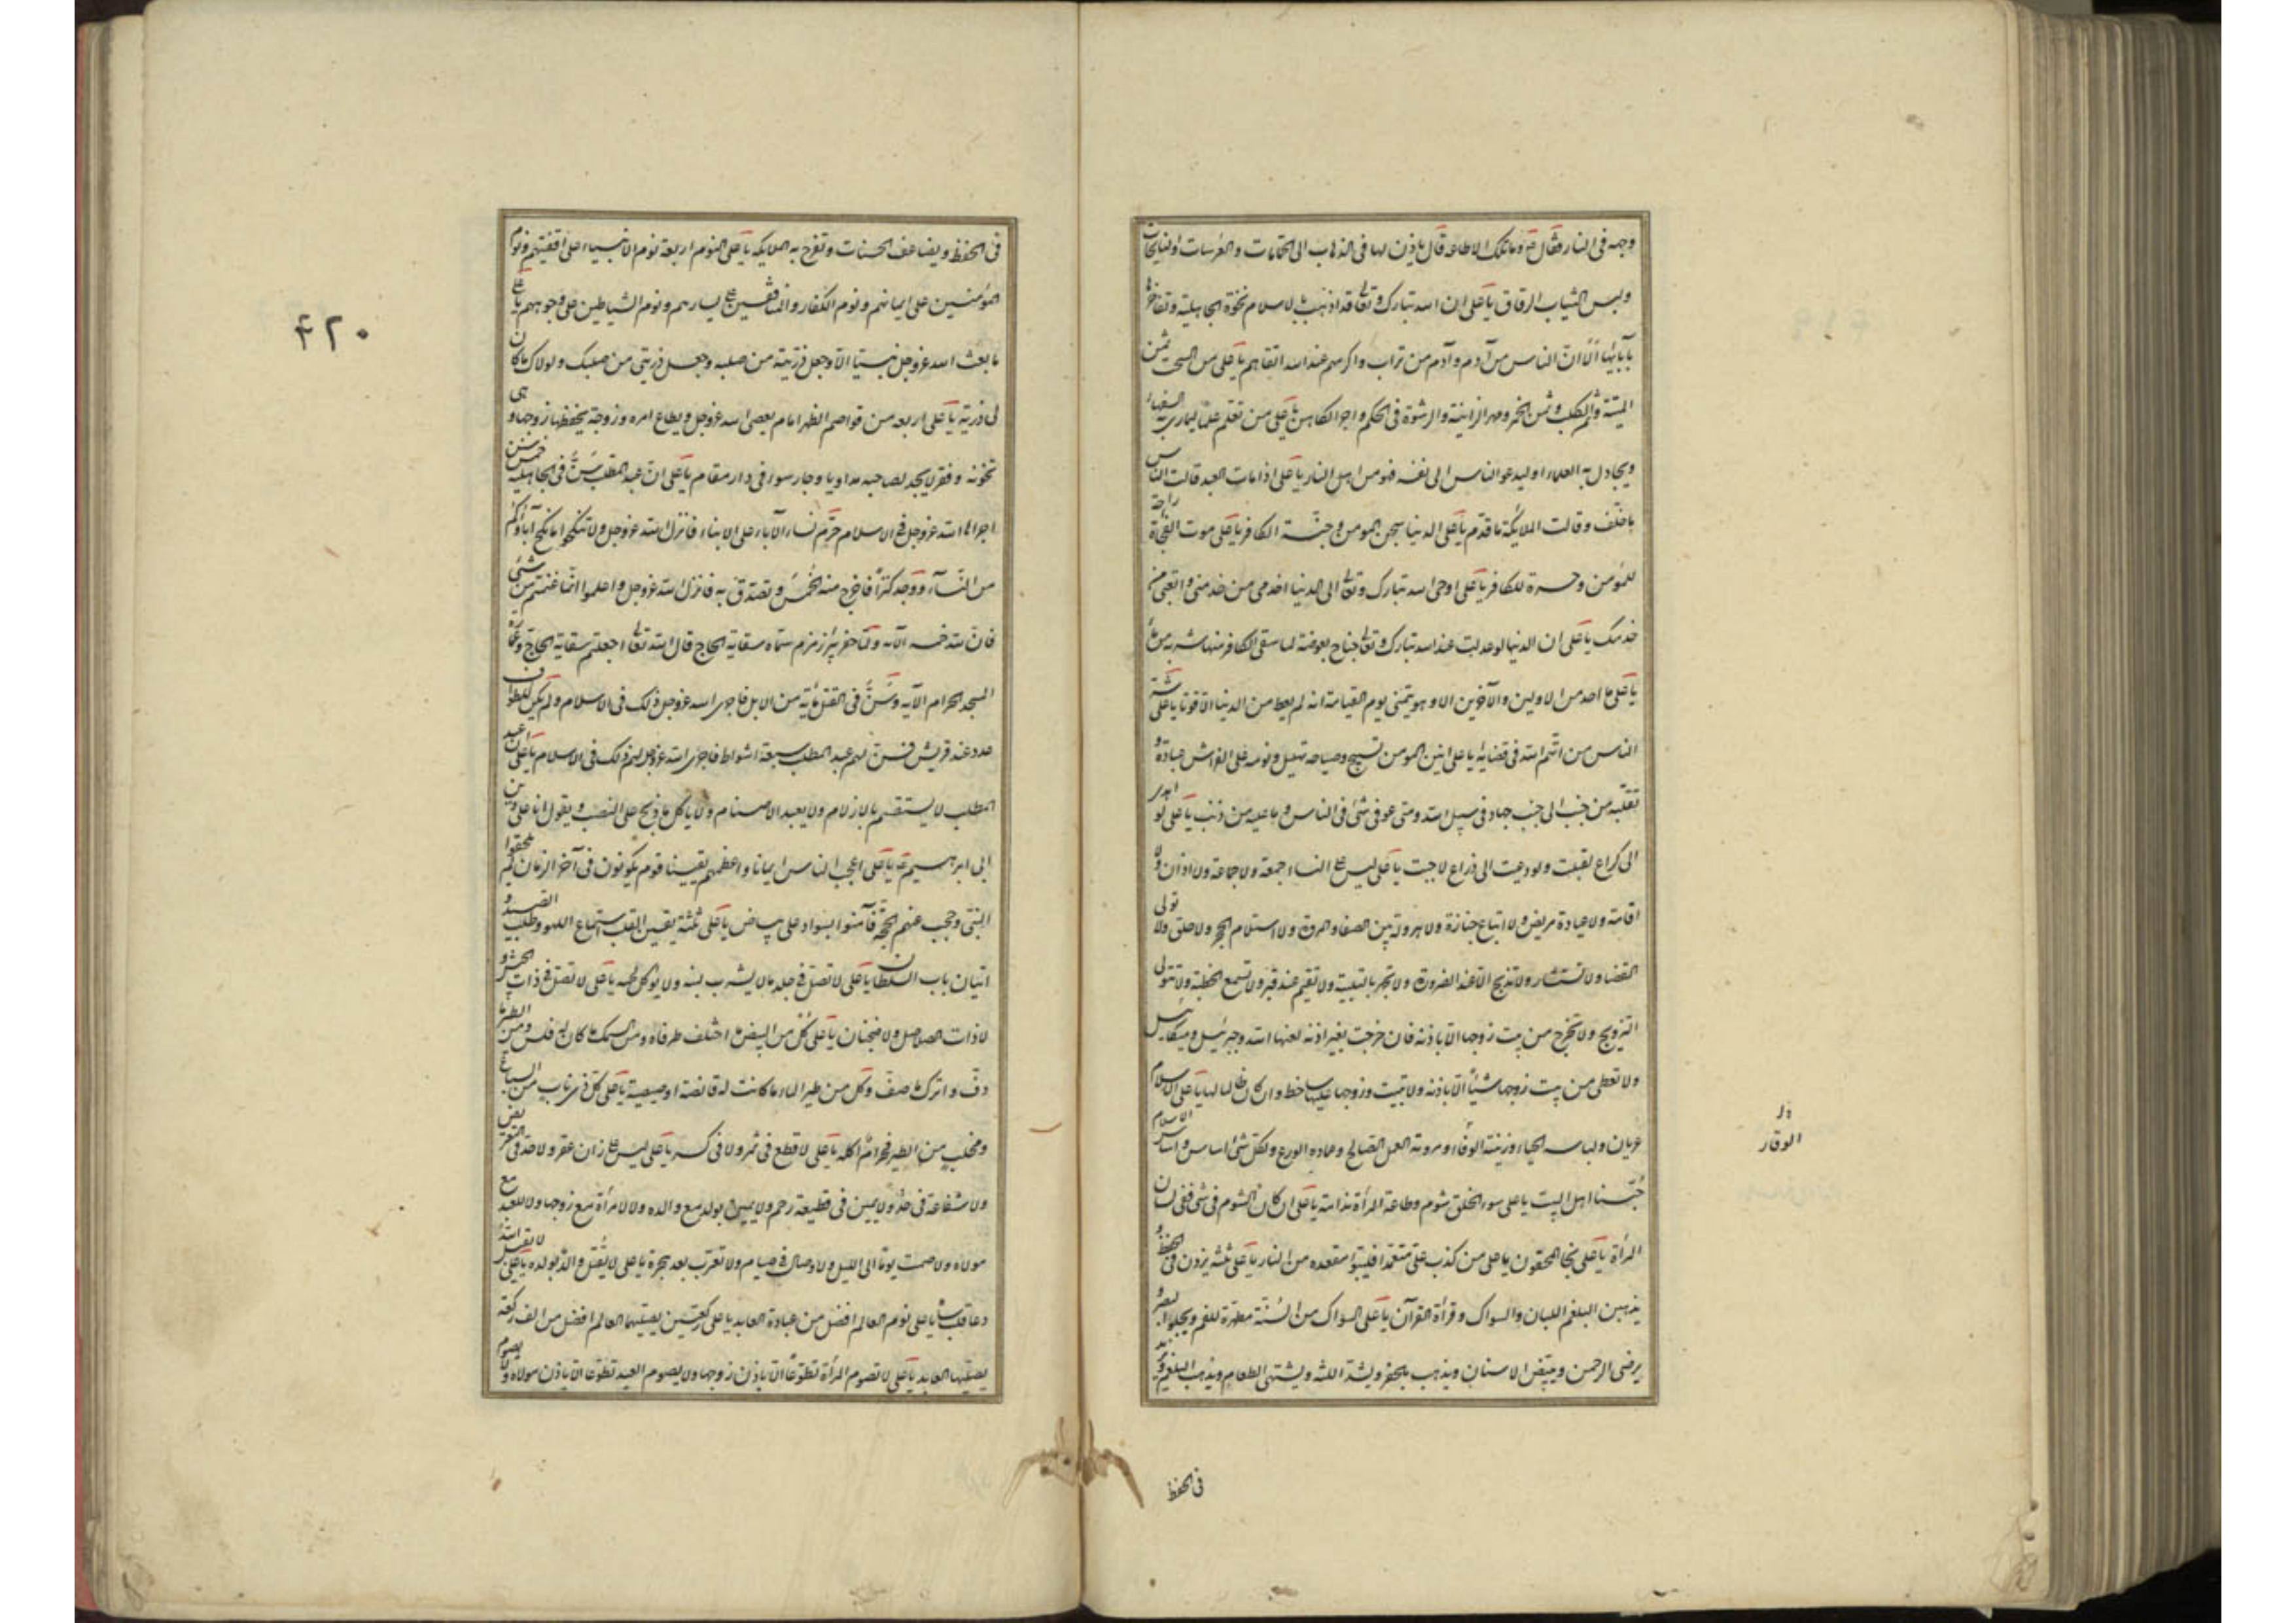 وجهه فی النار فقال ع وما تلک الطاعه قال یاذن لها فی الذهاب الی الحمامات والعرسات والنیاحات
ولبس الثیاب الرقاق یا علی ان الله تبارک وتعالی قد اذهب بالاسلام نخوة الجاهلیة وتفاخرها
بآبائها الا ان الناس من آدم وآدم من تراب واکرمهم عند الله اتقاهم یا علی من السحت ثمن
المیتة وثمن الکلب وثمن الخمر ومهر الزانیة والرشوة فی الحکم واجر الکاهن یا علی من تعلم علما لیماری به السفهاء
ویجادل به العلماء او لیدعو الناس الی نفسه فهو من اهل النار یا علی اذا مات العبد قالت الناس
ما خلّف وقالت الملائکة ما قدّم یا علی الدنیا سجن المومن وجنّة الکافر یا علی موت الفجاة راحة
للمؤمن وحسرة للکافر یا علی اوحی الله تبارک وتعالی الی الدنیا اخدمی من خدمنی واتعبی من
خدمک یا علی ان الدنیا لو عدلت عند الله تبارک وتعالی جناح بعوضة لما سقی الکافر منها شربة من ماء
یا علی ما احد من الاولین والآخرین الا وهو یتمنی یوم القیامة انه لم یعط من الدنیا الا قوتا یا علی شر
الناس من اتّهم الله فی قضایه یا علی انین المومن تسبیح وصیاحه تهلیل ونومه علی الفراش عبادة و
تقلّبه من جنب الی جنب جهاد فی سبیل الله ومتی عوفی مشی فی الناس وما علیه من ذنب یا علی لو اهدی
الی کراع لقبلت ولو دعیت الی ذراع لاجبت یا علی لیس علی النساء جمعة ولا جماعة ولا اذان ولا
اقامة ولا عیادة مریض ولا اتباع جنازة ولا هرولة بین الصفا والمروة ولا استلام الحجر ولا حلق ولا تولی
القضا ولا تستشار ولا تذبح الا عند الضرورة ولا تجهر بالتلبیة ولا تقیم عند قبر ولا تسمع الخطبة ولا تتولی
التزویج ولا تخرج من بیت زوجها الا باذنه فان خرجت بغیر اذنه لعنها الله وجبرئیل ومیکائیل
ولا تعطی من بیت زوجها شیئاً الا باذنه ولا تبیت وزوجها علیها ساخط وان کان ظالما لها یا علی الاسلام
عریان ولباسه الحیاء وزینته الوفاء ومروته العمل الصالح وعماده الورع ولکل شیء اساس واساس الاسلام
حُبّنا اهل البیت یا علی سوء الخلق شوم وطاعة المرأة ندامة یا علی ان کان الشوم فی شی ففی لسان
المرأة یا علی نجا المخفون یا علی من کذب علیّ متعمّدا فلیتبوّأ مقعده من النار یا علی ثلثة یزدن فی الحفظ و
یذهبن البلغم اللبان والسواک وقرأة القرآن یا علی السواک من السُّنّة مطهرة للفم ویجلو البصر و
یرضی الرحمن ویبیّض الاسنان ویذهب بالحفر ویشدّ اللثه ویشتهی الطعام ویذهب البلغم ویزید
الوقار
فی الحفظ
۴۲۰
فی الحفظ ویضاعف الحسنات وتفرح به الملایکه یا علی النوم اربعة نوم الانبیاء علی اقفیتهم ونوم
المؤمنین علی ایمانهم ونوم الکفار والمنافقین علی یسارهم ونوم الشیاطین علی وجوههم یا علی
ما بعث الله عزوجل نبیّا الا وجعل ذرّیته من صلبه وجعل ذریتی من صلبک ولولاک ما کان
لی ذریة یا علی اربعه من قواصم الظهر امام یعصی الله عزوجل ویطاع امره وزوجة یحفظها زوجها وهی
تخونه وفقر لا یجد لصاحبه مداویا وجار سوء فی دار مقام یا علی ان عبد المطلب سَنَّ فی الجاهلیة خمس سنن
اجراها الله عزوجل فی الاسلام حرّم نساء الآباء علی الابناء فانزل الله عزوجل ولا تنکحوا ما نکح آباؤکم
من النّساء ووجد کنزاً فاخرج منه الخُمسَ وتصدّق به فانزل الله عزوجل واعلموا انّما غنمتم من شیء
فانّ لله خمسه الآیه ولمّا حفر بئر زمزم سمّاه سقایة الحاج فانزل الله تعالی اجعلتم سقایة الحاج وعمارة
المسجد الحرام الآیه وسَنَّ فی القتل مائة من الابل فاجری الله عزوجل ذلک فی الاسلام ولم یکن للطواف
عدد عند قریش فسنّ لهم عبد المطلب سبعة اشواط فاجری الله عزوجل لهم ذلک فی الاسلام یا علی ان عبد
المطلب لا یستقسم بالازلام ولا یعبد الاصنام ولا یاکل ما ذبح علی النصب ویقول انا علی دین
ابی ابرهیم ع یا علی اعجب الناس ایمانا واعظمهم یقینا قوم یکونون فی آخر الزمان لم یلحقوا
النبیّ وحجب عنهم الحجّة فآمنوا بسواد علی بیاض یا علی ثلثة یقسین القلب استماع اللهو وطلب الصید و
اتیان باب السلطان یا علی لا تصلّ فی جلد ما لا یشرب لبنه ولا یؤکل لحمه یا علی لا تصلّ فی ذات الجیش و
لا ذات الصلاصل ولا ضجنان یا علی کُل من البیض ما اختلف طرفاه ومن السمک ما کان له فلس ومن الطیر ما
دفّ واترک ما صفّ وکل من طیر الماء ما کانت له قانصة او صیصیة یا علی کل ذی ناب من السباع
ومخلب من الطیر فحرامٌ اکله یا علی لا قطع فی ثمر ولا فی کسر یا علی لیس علی زان عقر ولا حدّ فی التعریض
ولا شفاعة فی حدّ ولا یمین فی قطیعة رحم ولا یمین لولد مع والده ولا لامرأة مع زوجها ولا للعبد مع
مولاه ولا صمت یوما الی اللیل ولا وصال فی صیام ولا تعرّب بعد هجرة یا علی لا یُقتل والدٌ بولده یا علی لا یقبل الله
دعاء قلب ساه یا علی نوم العالم افضل من عبادة العابد یا علی رکعتین یصلّیهما العالم افضل من الف رکعة
یصلّیها العابد یا علی لا تصوم المرأة تطوّعاً الا باذن زوجها ولا یصوم العبد تطوّعا الا باذن مولاه ولا یصوم